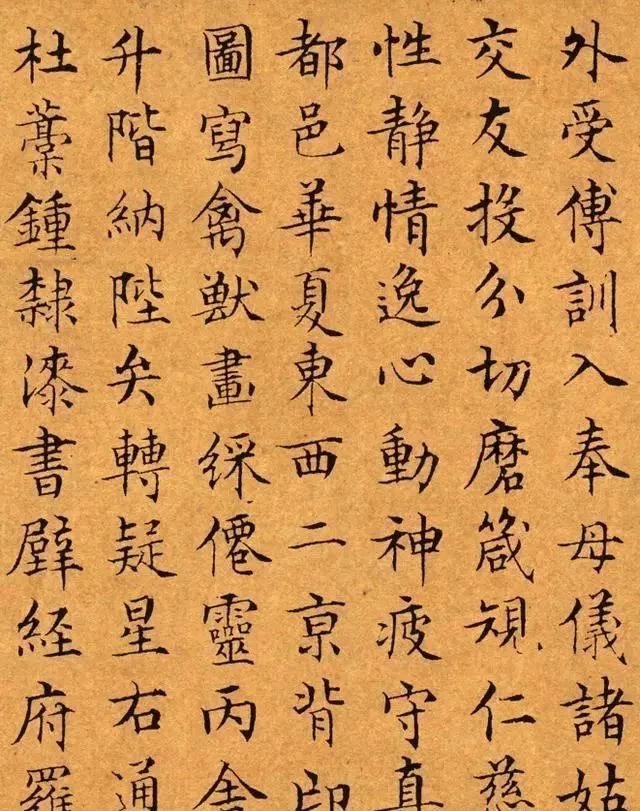 外受傅訓入奉母儀諸姑
交友投分切磨箴規仁慈
性静情逸心動神疲守真
都邑華夏東西二亰背邙
圖寫禽獸畫綵僊靈丙舍
升階納陛矣轉疑星右通
杜藁鍾隸漆書壁経府羅